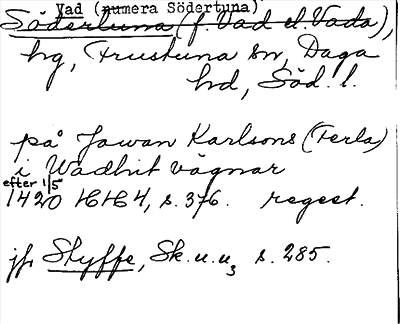 Vad (numera Södertuna)
Södertuna (f. Vad el. Vada),
hg, Frustuna sn, Daga
hd, Söd. l.
på Jawan Karlsons (Ferla)
i Wadhit vägnar
efter 1/5
1420 HH 4, s. 376. regest.
jfr Styffe, Sk.u.u3 s. 285.